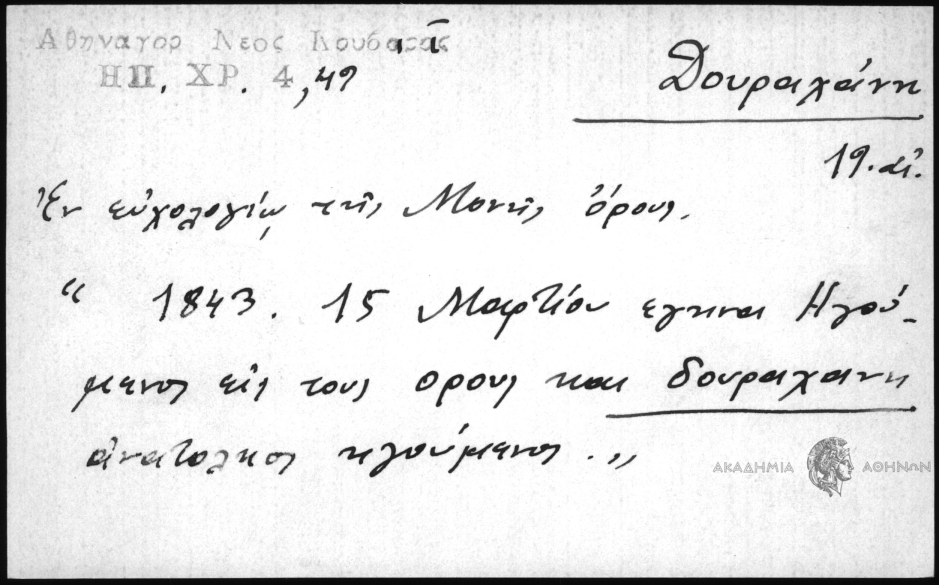 Αθηναγορ Νεος Κουβαρας
ΗΠ. ΧΡ. 4, 49
Δουραχάνη
19. αἰ.
Ἐν εὐχολογίῳ τῆς Μονῆς ὄρους.
“ 1843. 15 Μαρτίου εγεινα Ηγού-
μενος εἰς τους ορους και δουραχανη
ἀνατολικος ηγούμενος.„
ΑΚΑΔΗΜΙΑ ΑΘΗΝΩΝ